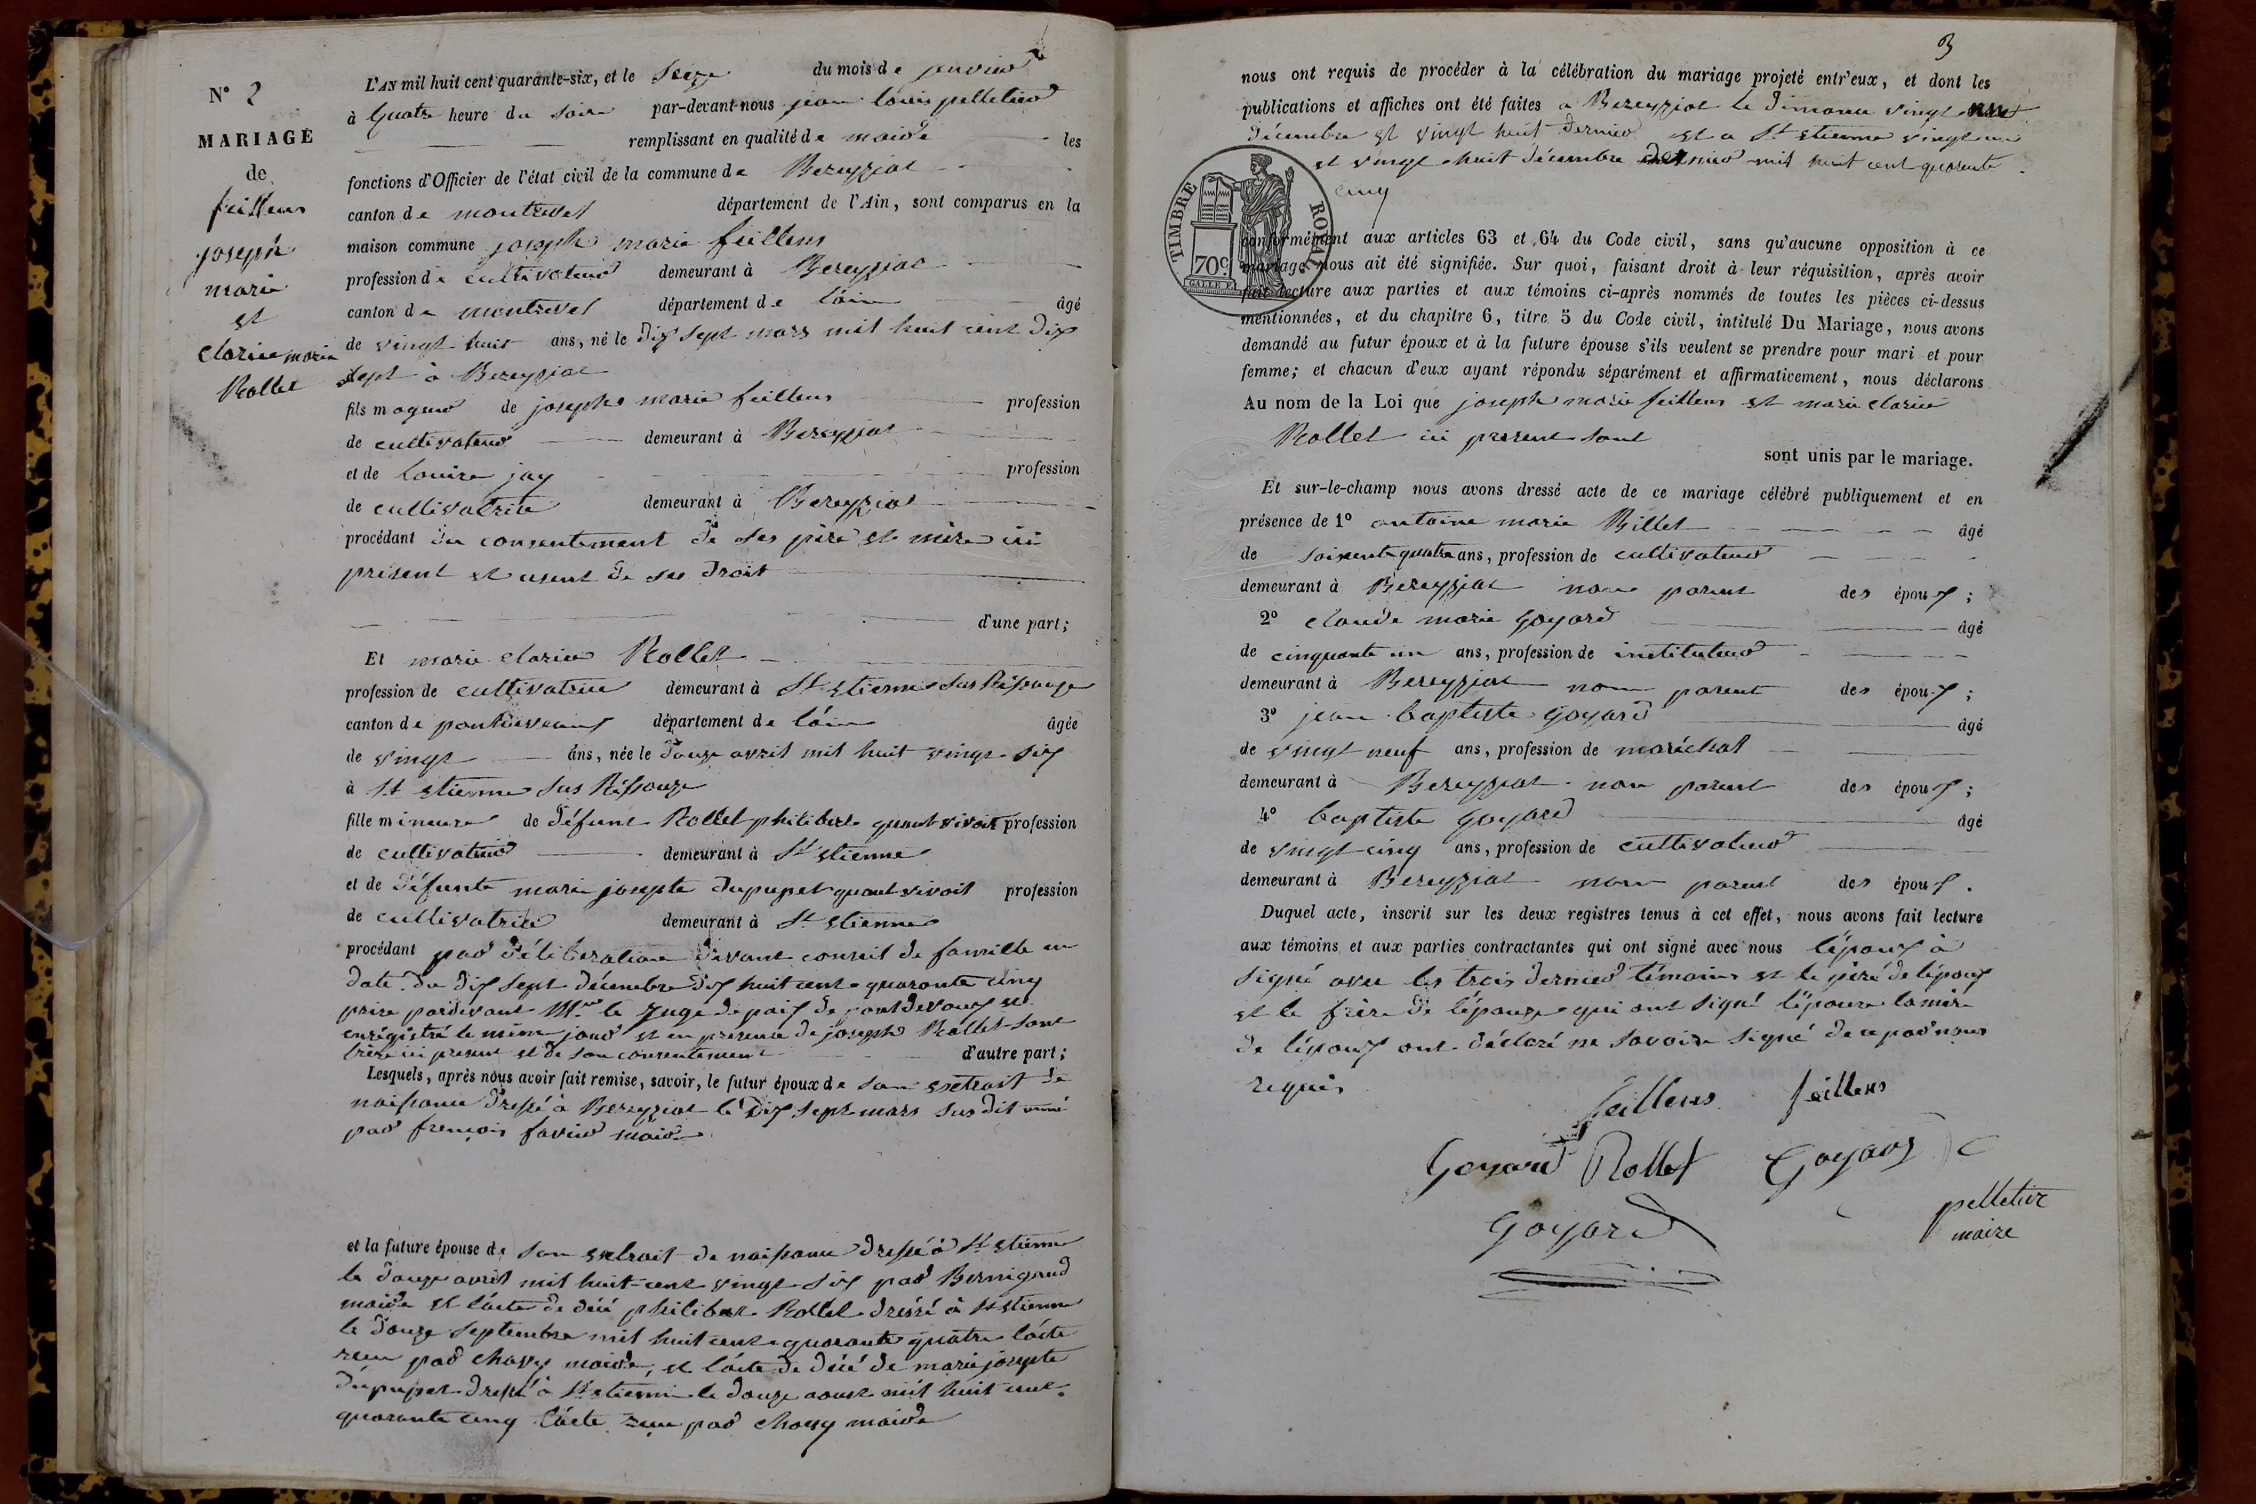 N° 2
MARIAGE
de
feillens
joseph
marie
et
clarice marie
Rollet
L'AN mil huit cent quarante-six, et le Seize du mois de janvier
à quatre heure du soire par-devant-nous jean louis pelletier
remplissant en qualité de maire les
fonctions d'Officier de l'état civil de la commune de Bereyziat
canton de montrevel département de l'Ain, sont comparus en la
maison commune joseph marie feillens
profession de cultivateur demeurant à Bereyziat
canton de montrevel département de l'ain âgé
de vingt huit ans, né le dix sept mars mil huit cent dix
sept à Bereyziat
fils mageur de joseph marie feillens profession
de cultivateur demeurant à Bereyziat
et de louise jay profession
de cultivatrice demeurant à Bereyziat
procédant du consentement de ses père et mère ici
présent et usent de ses droit
d'une part;
Et marie clarice Rollet
profession de cultivatrice demeurant à St etienne sus Réssouze
canton de pontdevaux département de l'ain âgée
de vingt ans, née le douze avril mil huit vingt six
à St etienne sus Réssouze
fille mineure de défunt Rollet philibert quant vivoit profession
de cultivateur demeurant à St etienne
et de défunte marie josepte dupupet quant vivoit profession
de cultivatrice demeurant à St etienne
procédant par délibération devant conseil de famille en
date du dix sept décembre dix huit cent quarante cinq
prise pardevant Mr le Juge de paix de pontdevaux et
enrégistré le même jour et en présence de joseph Rollet sont
frère ici présent et de son consentement d'autre part;
Lesquels, après nous avoir fait remise, savoir, le futur époux de son extrait de
naissance dressé à Bereyziat le dix sept mars sus dit anné
par françois favier maire
et la future épouse de son extrait de naissance dressé à St etienne
le douze avril mil huit cent vingt six par Bernigaud
maire et l'acte de décé philibert Rollet dressé à St etienne
le douze septembre mil huit cent quarante quatre l'acte
reçu par chavy maire, et l'acte de décé de marie josepte
dupupet dressé à St etienne le douze aoust mil huit cent
quarante cinq l'acte reçu par chavy maire
3
nous ont requis de procéder à la célébration du mariage projeté entr'eux, et dont les
publications et affiches ont été faites a Bereyziat le dimance vingt une
décembre et vingt huit dernier et a St etienne vingt un
et vingt huit décembre dernier mil huit cent quarante
cinq
TIMBRE ROYAL
70c
conformément aux articles 63 et 64 du Code civil, sans qu'aucune opposition à ce
mariage nous ait été signifiée. Sur quoi, faisant droit à leur réquisition, après avoir
fait lecture aux parties et aux témoins ci-après nommés de toutes les pièces ci-dessus
mentionnées, et du chapitre 6, titre 5 du Code civil, intitulé Du Mariage, nous avons
demandé au futur époux et à la future épouse s'ils veulent se prendre pour mari et pour
femme; et chacun d'eux ayant répondu séparément et affirmativement, nous déclarons
Au nom de la Loi que joseph marie feillens et marie clarice
Rollet ici present sont
sont unis par le mariage.
Et sur-le-champ nous avons dressé acte de ce mariage célébré publiquement et en
présence de 1° antoine marie Billet âgé
de soixente quatre ans, profession de cultivateur
demeurant à Bereyziat non parent des époux;
2° claude marie Goyard âgé
de cinquante un ans, profession de instituteur
demeurant à Bereyziat non parent des époux;
3° jean baptiste Goyard âgé
de vingt neuf ans, profession de maréchal
demeurant à Bereyziat non parent des époux;
4° baptiste Goyard âgé
de vingt cinq ans, profession de cultivateur
demeurant à Bereyziat non parent des époux.
Duquel acte, inscrit sur les deux registres tenus à cet effet, nous avons fait lecture
aux témoins et aux parties contractantes qui ont signé avec nous l'époux à
signé avec les trois dernier témoins et le père de l'époux
et le frère de l'épouze qui ont signé l'épouse la mère
de l'époux ont déclaré ne savoire signé de ce par nous
requis
feillens feillens
Goyard Rollet Goyard
pelletier
maire
Goyard